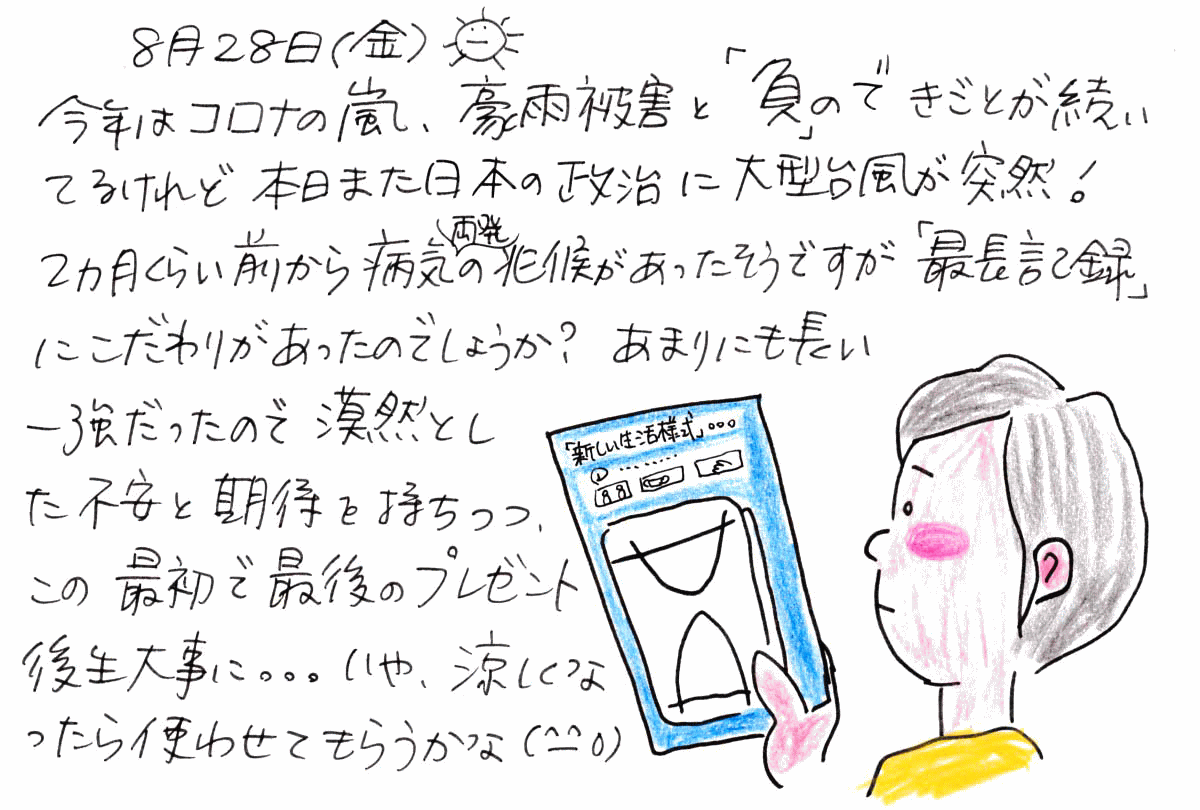 8月28日(金)
今年はコロナの嵐、豪雨被害と「負」のできごとが続い
てるけれど本日また日本の政治に大型台風が突然！
2カ月くらい前から病気の(再発)兆候があったそうですが「最長記録」
にこだわりがあったのでしょうか？ あまりにも長い
一強だったので漠然とし
た不安と期待を持ちつつ、
この最初で最後のプレゼント
後生大事に。。。いや、涼しくな
ったら使わせてもらうかな(^^0)
「新しい生活様式」。。。